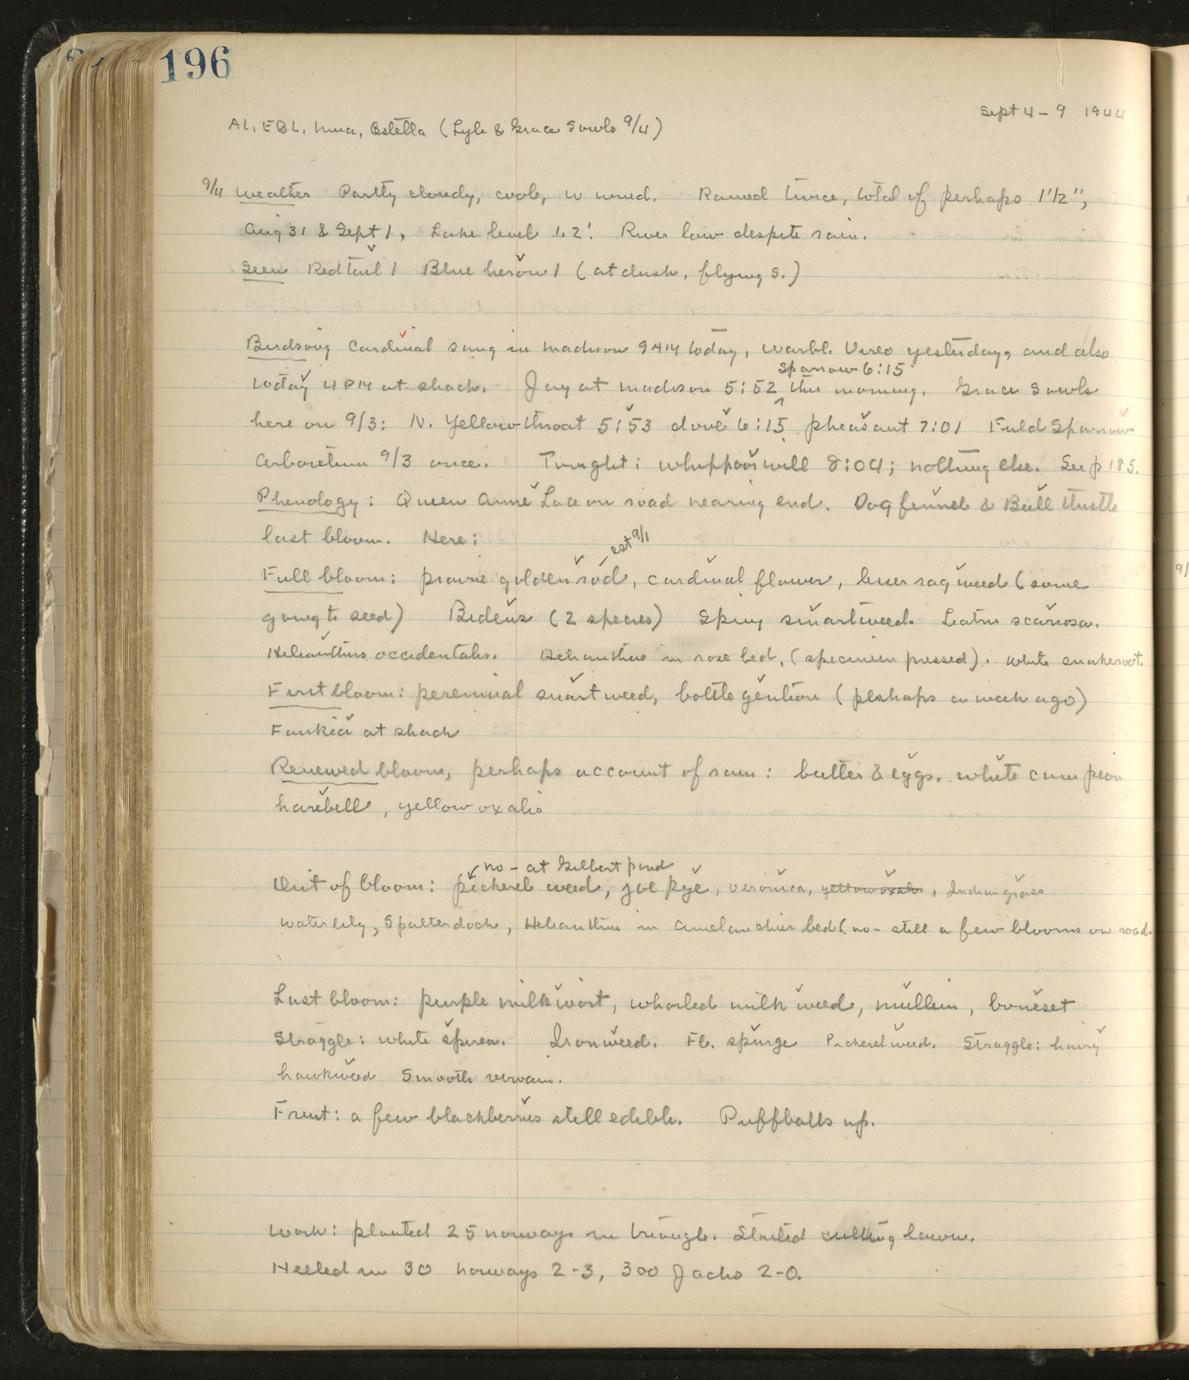 196
Sept 4-9 1944
AL, EBL, Nina, Estella (Lyle & Grace Sowls 9/4)
9/4 Weather Partly cloudy, cool, W wind. Rained twice, total of perhaps 1 1/2",
Aug 31 & Sept 1, Lake level 1.2'. River low despite rain.
Seen Redtail 1 Blue heron 1 (at dusk, flying S.)
Birdsong Cardinal sang in Madison 9 AM today, Warbl. Vireo yesterday, and also
Sparrow 6:15
today 4 PM at shack. Jay at Madison 5:52 this morning. Grace Sowls
here on 9/3: N. Yellowthroat 5:53 dove 6:15 pheasant 7:01 Field Sparrow
Arboretum 9/3 once. Tonight: whippoorwill 8:04; nothing else. See p 185.
Phenology: Queen Anne Lace on road nearing end. Dog fennel & Bull thistle
last bloom. Here:
est 9/1
Full bloom: prairie goldenrod, cardinal flower, lesser ragweed (some
going to seed) Bidens (2 species) Spiny smartweed. Liatris scariosa.
Helianthus occidentalis. Helianthus in rose bed, (specimen pressed). White snakeroot.
First bloom: perennial smartweed, bottle gentian (perhaps a week ago)
Funkia at shack
Renewed bloom, perhaps account of rain: butter & eggs. white campion
harebell, yellow oxalis
no - at Gilbert pond
Out of bloom: pickerel weed, joe pye, veronica, yellow oxalis, Indian grass
water lily, Spatterdock, Helianthus in Amelanchier bed (no - still a few blooms on road.
Last bloom: purple milkwort, whorled milkweed, mullein, boneset
Straggle: white spirea. Ironweed. Fl. spurge Pickerel weed. Straggle: hairy
hawkweed Smooth vervain.
Fruit: a few blackberries still edible. Puffballs up.
Work: planted 25 norways in triangle. Started cutting lawn.
Heeled in 30 norways 2-3, 300 Jacks 2-0.